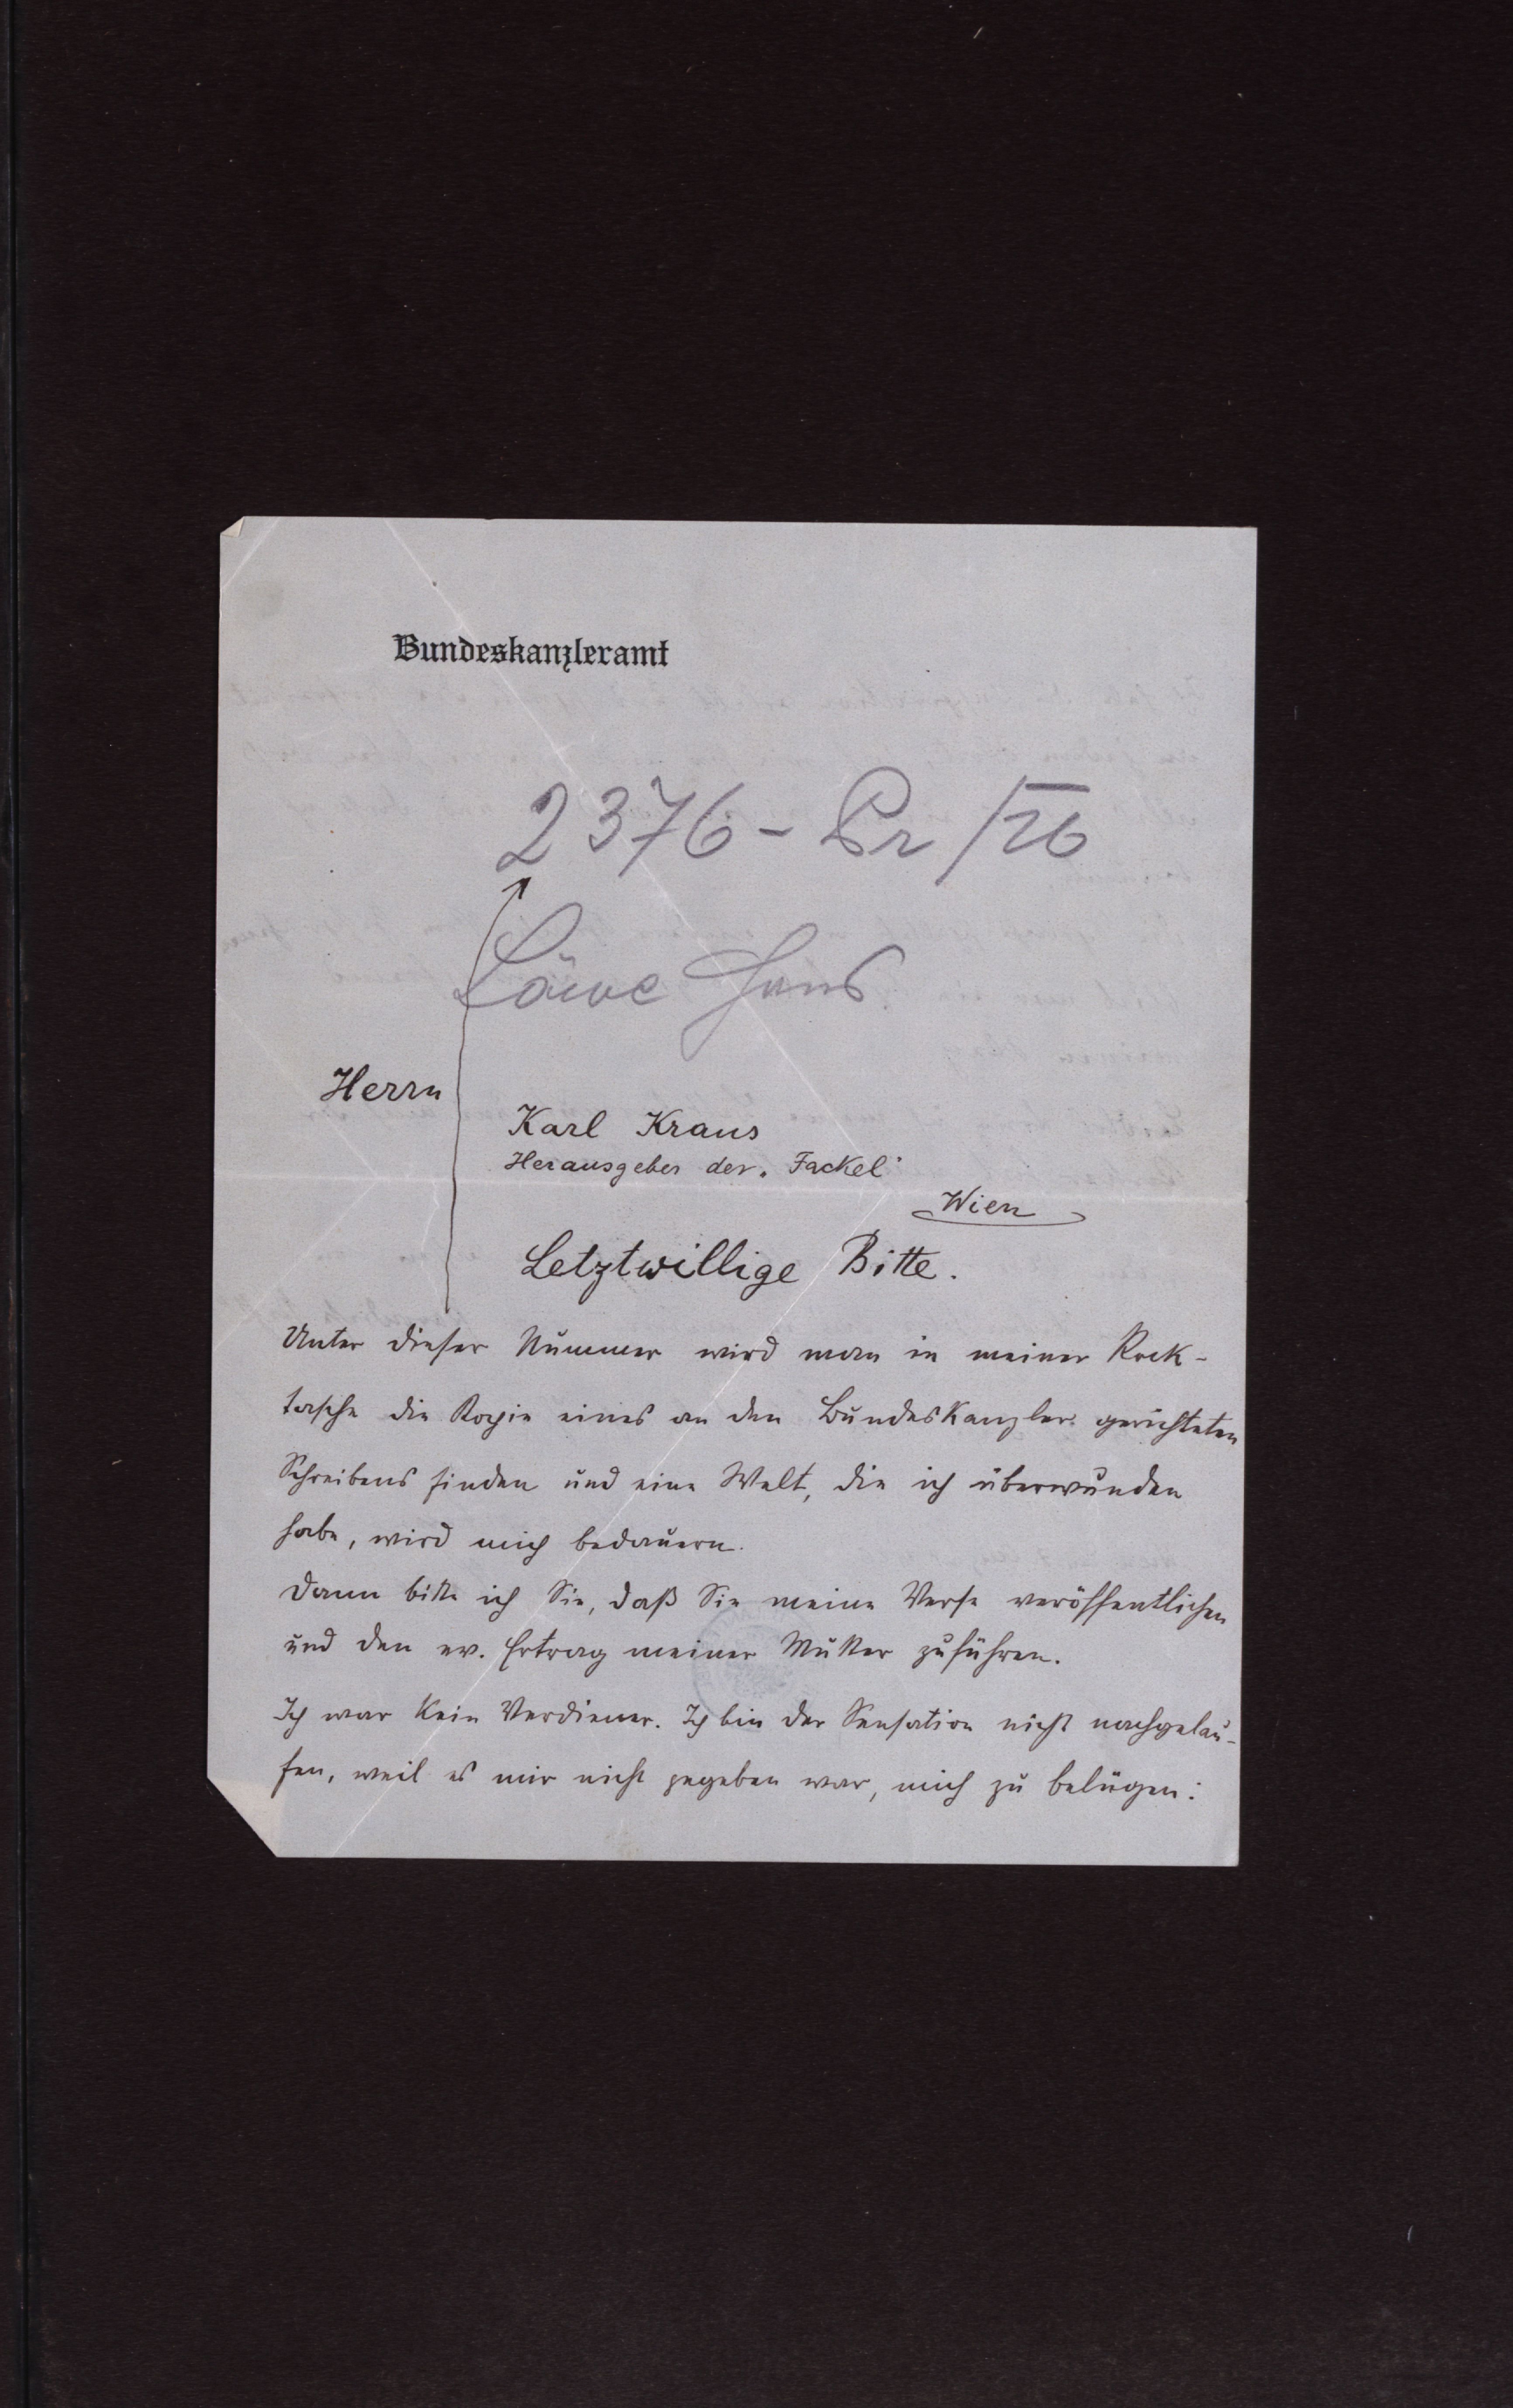 Bundeskanzleramt
2376-Pr/26
Löwe Hans
Herrn
Karl Kraus
Herausgeber der „Fackel“
Wien
Letztwillige Bitte.
Unter dieser Nummer wird man in meiner Rock-
tasche die Kopie eines an den Bundeskanzler gerichteten
Schreibens finden und eine Welt, die ich überwunden
habe, wird mich bedauern.
Dann bitte ich Sie, daß Sie meine Verse veröffentlichen
und den ev. Ertrag meiner Mutter zuführen.
Ich war kein Verdiener. Ich bin der Sensation nicht nachgelau-
fen, weil es mir nicht gegeben war, mich zu belügen: